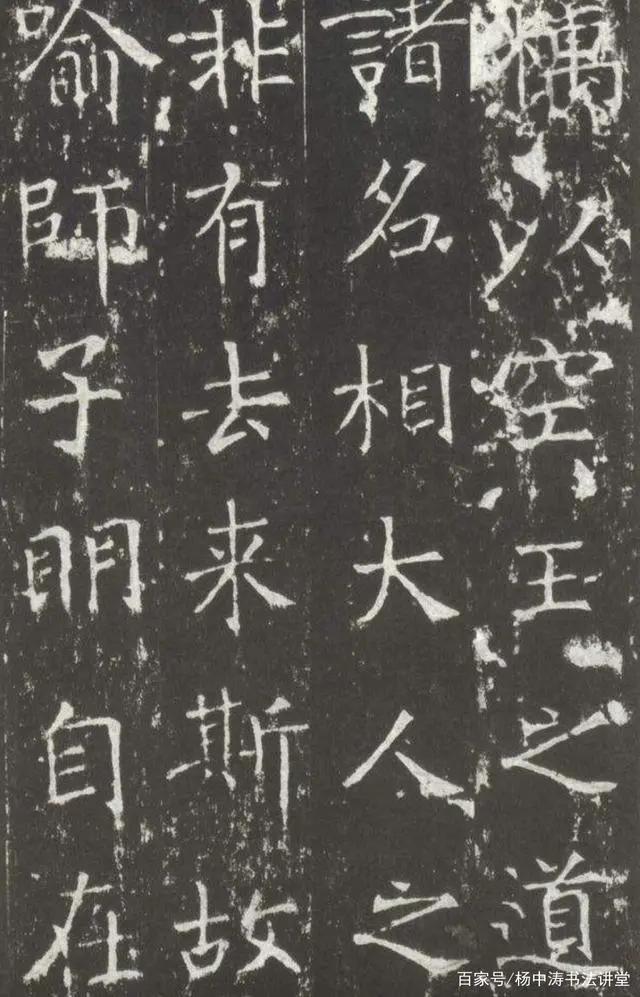 以空王之道
諸名相大人之
非有去来斯故
喻師子明自在
百家号/杨中涛书法讲堂